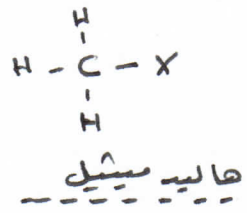 H
H - C - X
H
هاليد ميثيل